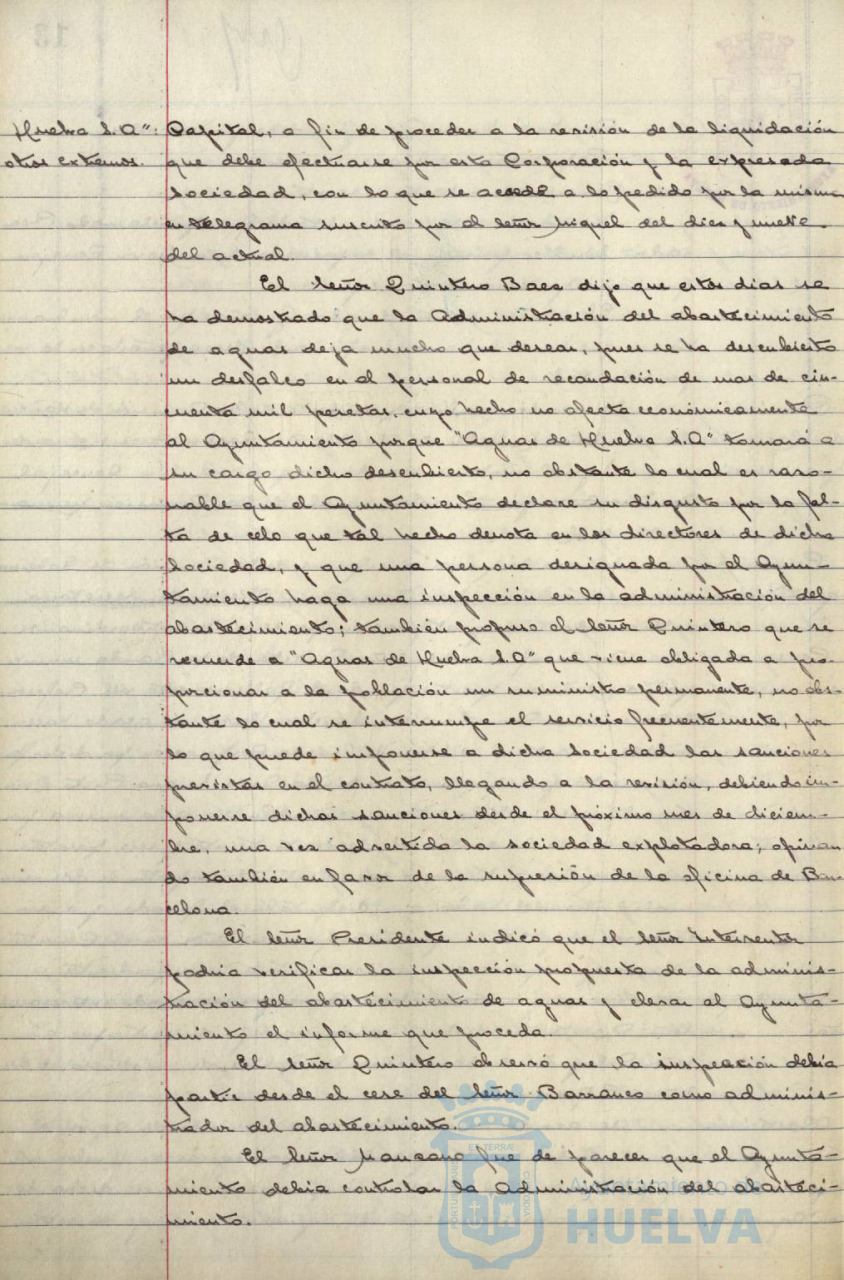 Huelva S.A": Capital, a fin de proceder a la revisión de la liquidación
otros extremos. que debe efectuarse por esta Corporación y la expresada
Sociedad, con lo que se accede a lo pedido por la misma
en telegrama suscrito por el Señor Miquel del dies y nueve
del actual.
El Señor Quintero Baez dijo que estos dias se
ha demostrado que la Administración del abastecimiento
de aguas deja mucho que desear, pues se ha descubierto
un desfalco en el personal de recaudación de mas de cin-
cuenta mil pesetas, cuyo hecho no afecta económicamente
al Ayuntamiento porque "Aguas de Huelva S.A" tomará a
su cargo dicho descubierto, no obstante lo cual es razo-
nable que el Ayuntamiento declare su disgusto por la fal-
ta de celo que tal hecho denota en los directores de dicha
Sociedad, y que una persona designada por el Ayun-
tamiento haga una inspección en la administración del
abastecimiento; también propuso el Señor Quintero que se
recuerde a "Aguas de Huelva S.A" que viene obligada a pro-
porcionar a la población un suministro permanente, no obs-
tante lo cual se interrumpe el servicio frecuentemente, por
lo que puede imponerse a dicha Sociedad las sanciones
previstas en el contrato, llegando a la revisión, debiendo im-
ponerse dichas sanciones desde el próximo mes de diciem-
bre, una vez advertida la sociedad explotadora; opinan-
do también en favor de la supresión de la oficina de Bar-
celona.
El Señor Presidente indicó que el Señor Interventor
podria verificar la inspección propuesta de la adminis-
tración del abastecimiento de aguas y elevar al Ayunta-
miento el informe que proceda.
El Señor Quintero observó que la inspección debia
partir desde el cese del Señor Barranco como adminis-
trador del abastecimiento.
El Señor Manzano fue de parecer que el Ayunta-
miento debia controlar la Administración del abasteci-
miento.
Ayuntamiento
HUELVA